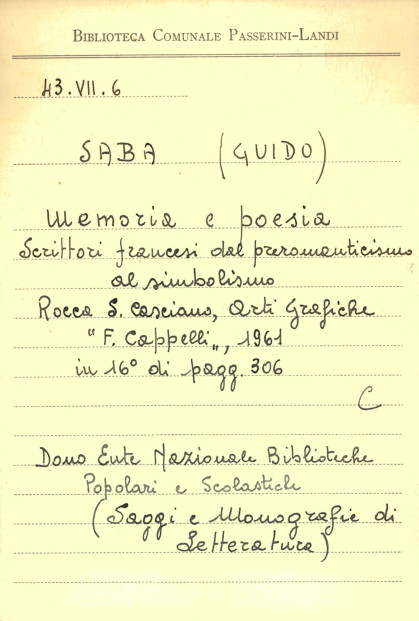 BIBLIOTECA COMUNALE PASSERINI-LANDI
43.VII.6
SABA (GUIDO)
Memoria e poesia
Scrittori francesi dal preromanticismo
al simbolismo
Rocca S. Casciano, Arti Grafiche
"F. Cappelli„, 1961
in 16° di pagg. 306
C
Dono Ente Nazionale Biblioteche
Popolari e Scolastiche
(Saggi e Monografie di
Letteratura)